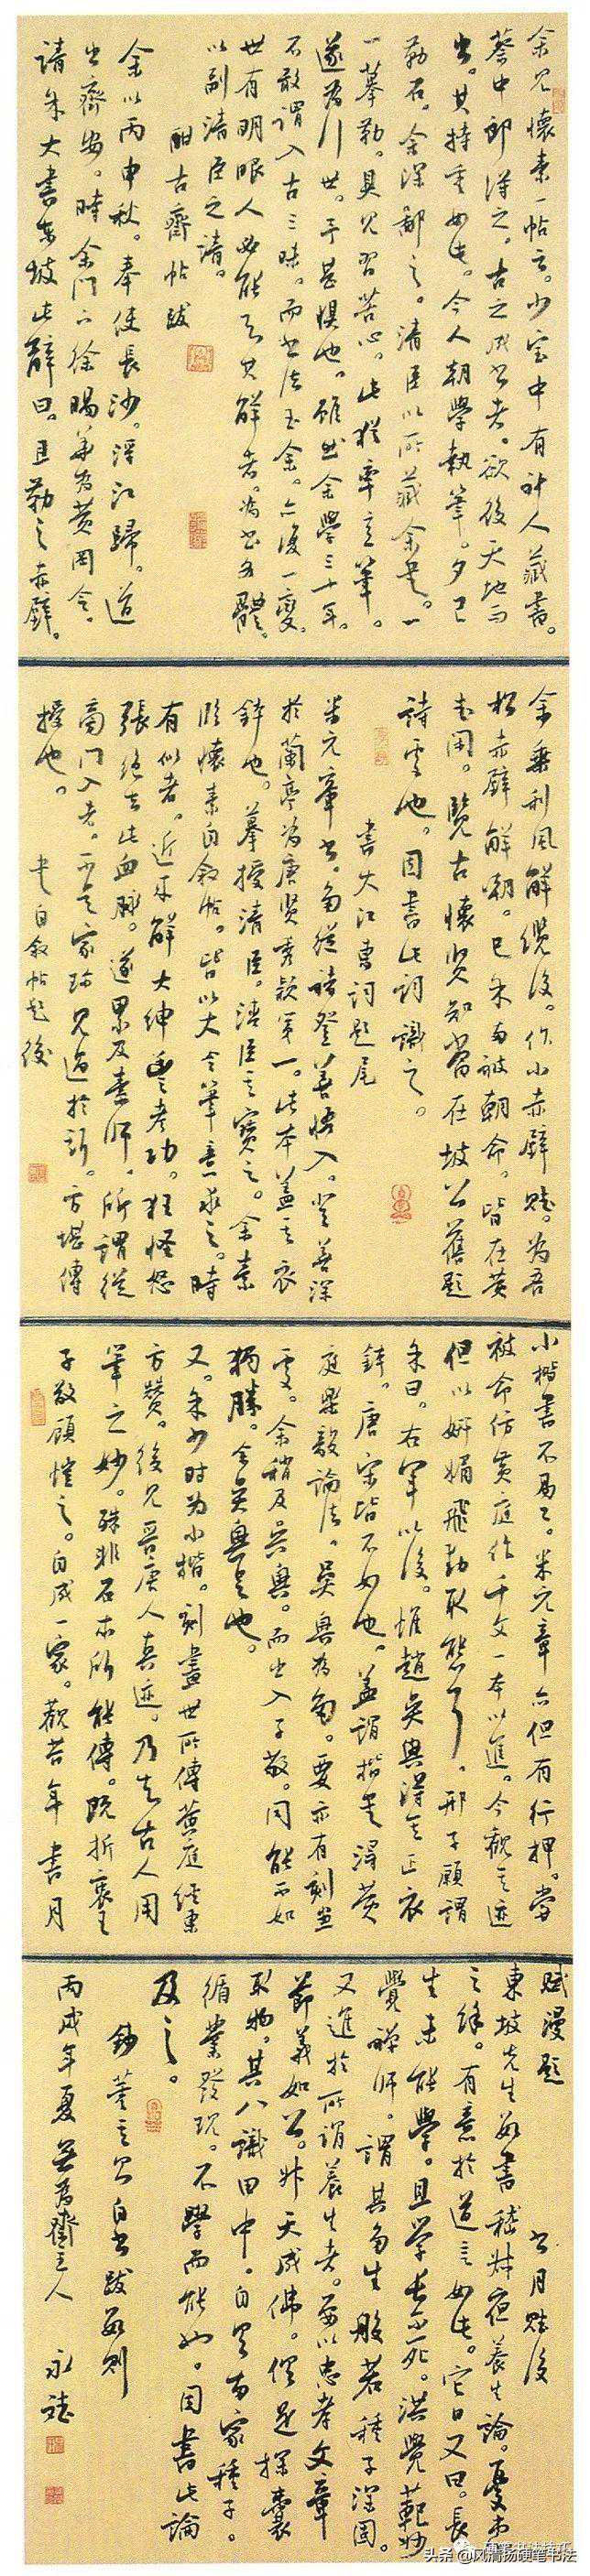 余見懷素一帖言。少室中有神人藏書。
蔡中郎得之。古之成書者。欲後天地而
出。其持重如此。今人朝學執筆。夕已
勒石。余深鄙之。清臣以所藏余書。一
一摹勒。具見習苦心。此猶率意筆。
遂為行世。予甚懼也。雖然余學三十年。
不敢謂入古三昧。而書法至余。亦復一變。
世有明眼人必能知其解者。為書各體。
以副清臣之請。
酣古齋帖跋
余以丙申秋。奉使長沙。浮江歸。道
出齊安。時余門下徐暘華為黃岡令。
請余大書東坡此辭曰。且勒之赤壁。
余乘利風解纜後。作小赤壁賦。為吾
松赤壁解嘲。已余兩被朝命。皆在黃
武間。覽古懷賢知當在坡公舊題
詩處也。因書此詞識之。
書大江東詞題尾
米元章書。多從褚登善悟入。登善深
於蘭亭為唐賢秀穎第一。此本蓋其衣
鉢也。摹授清臣。清臣其寶之。余素
臨懷素自敘帖。皆以大令筆意求之。時
有似者。近來解大紳豐考功。狂怪怒
張絕去此血脈。遂累及素師。所謂從
旁門入者。不是家珍見過於師。方堪傳
授也。
書自敘帖題後
小楷書不易工。米元章亦但有行押。嘗
被命仿黃庭作千文一本以進。今觀其迹
但以妍媚飛動取態耳。邢子願謂
余曰。右軍以後。惟趙吳興得其正衣
鉢。唐宋皆不如也。蓋謂楷書得黃
庭樂毅論法。吳興為多。要亦有刻畫
處。余稍及吳興。而出入子敬。同能不如
獨勝。余吳興是也。
又。余少時為小楷。刻畫世所傳黃庭經東
方贊。後見晉唐人真迹。乃知古人用
筆之妙。殊非石本所能傳。既折衷王
子敬顧愷之。自成一家。觀昔年書月
賦漫題 書月賦後
東坡先生數書嵇叔夜養生論。憂患
之餘。有意於道言如此。它日又曰。長
生未能學。且學長不死。洪覺範妙
覺禪師。謂其多生般若種子深固。
又進於所謂養生者。而以忠孝文章
節義如公。升天成佛。僅是探囊
取物。其八識田中。自是吾家種子。
循業發現。不學而能也。因書此論
及之。
鈔董其昌自書跋數則
丙戌年夏 無為齋主人 永
头条 @风清扬硬笔书法